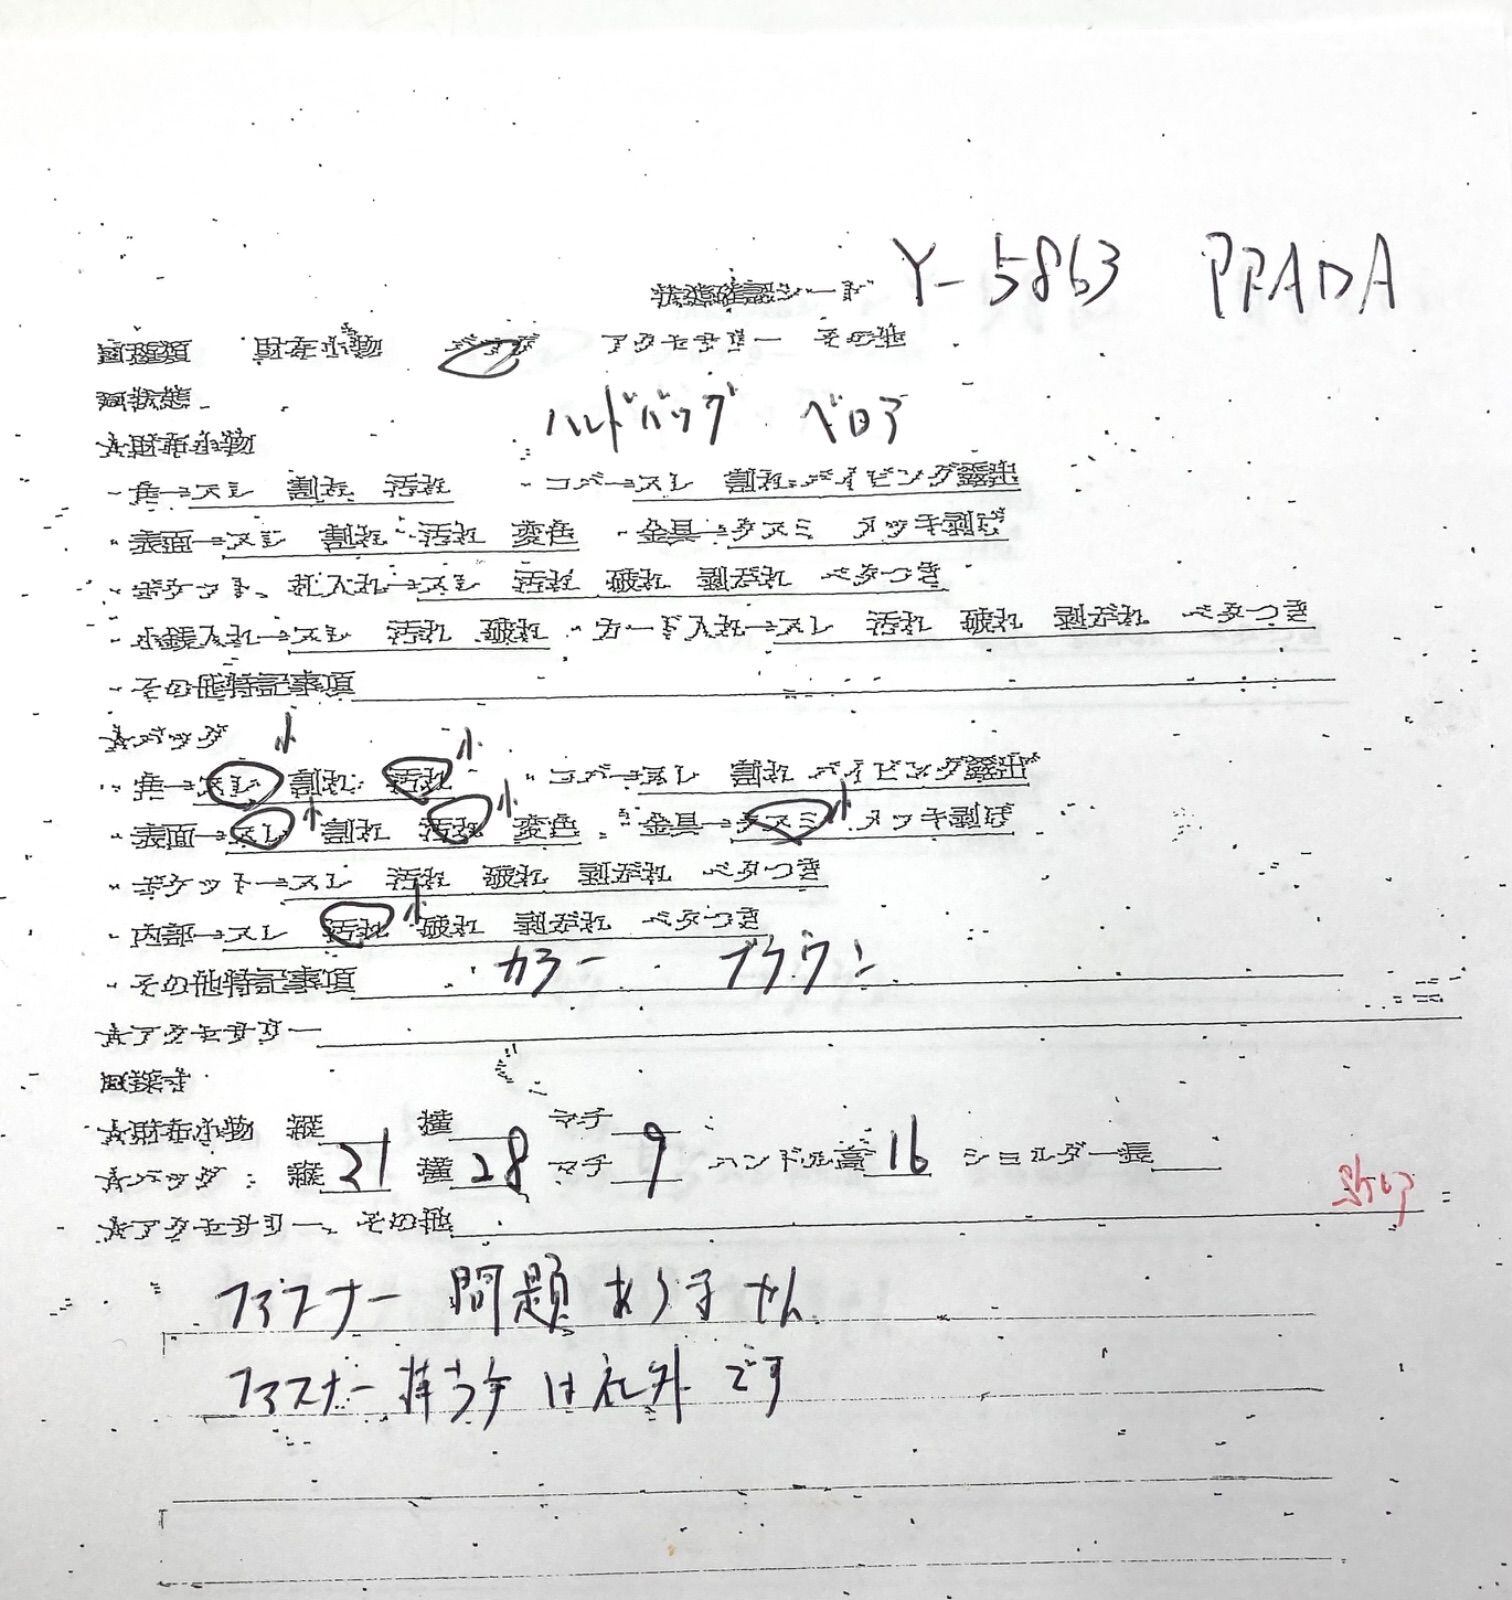 状態確認シート Y-5863 PRADA
■種類 財布小物 バッグ アクセサリー その他
■状態
ハンドバッグ ベロア
★財布小物
・角→スレ 割れ 汚れ ・コバ→スレ 割れ パイピング露出
・表面→スレ 割れ 汚れ 変色 ・金具→クスミ メッキ剥げ
・ポケット、札入れ→スレ 汚れ 破れ 型崩れ ベタつき
・小銭入れ→スレ 汚れ 破れ ・カード入れ→スレ 汚れ 破れ 型崩れ ベタつき
・その他特記事項
★バッグ
・角→スレ 小 割れ 汚れ 小 ・コバ→スレ 割れ パイピング露出
・表面→スレ 小 割れ 汚れ 小 変色 ・金具→クスミ 小 メッキ剥げ
・ポケット→スレ 汚れ 破れ 型崩れ ベタつき
・内部→スレ 汚れ 小 破れ 型崩れ ベタつき
・その他特記事項 ・カラー ブラウン
★アクセサリー
■採寸
★財布小物 縦 横 マチ
★バッグ 縦 21 横 28 マチ 9 ハンドル高 16 ショルダー長
★アクセサリー、その他
ファスナー 問題ありません
ファスナー 持ち手は社外です